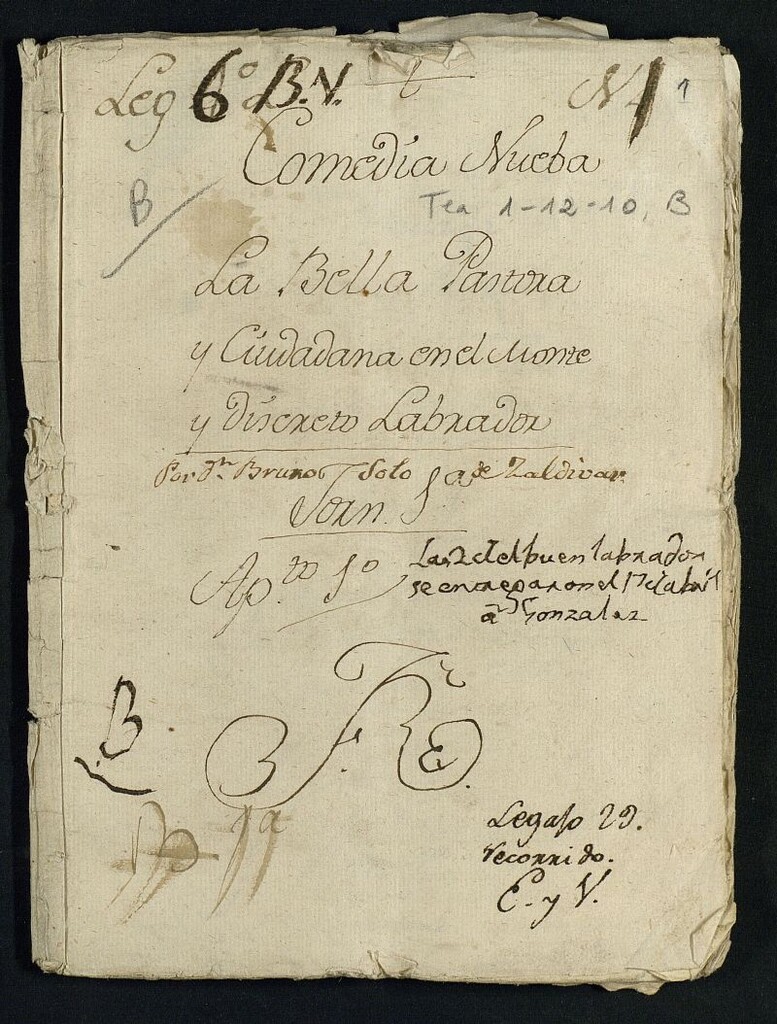 Leg 6º B.V. N 1 1
Comedia Nueba
B
Tea 1-12-10, B
La Bella Pastora
y Ciudadana en el Monte
y discreto Labrador
Por Dn. Bruno Solo de Zaldivar
Jorn. 1ª
Ap.to 1º
Las 2 del buen labrador
se entregaron el 17 de abril
a Gonzalez
B
Legajo 29.
recorrido.
C. y V.